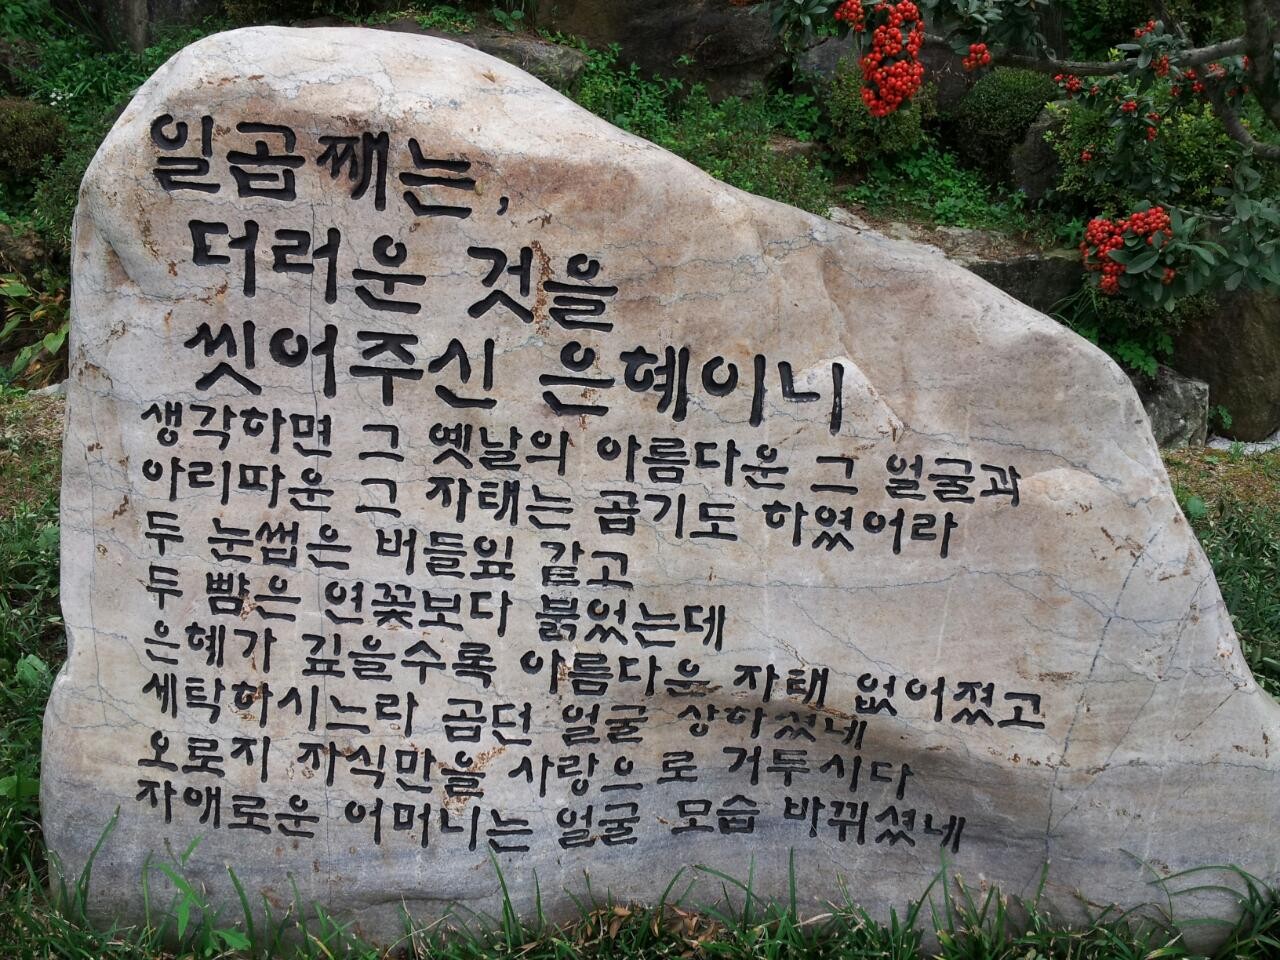 일곱째는,
더러운 것을
씻어주신 은혜이니
생각하면 그 옛날의 아름다운 그 얼굴과
아리따운 그 자태는 곱기도 하였어라
두 눈썹은 버들잎 같고
두 뺨은 연꽃보다 붉었는데
은혜가 깊을수록 아름다운 자태 없어졌고
세탁하시느라 곱던 얼굴 상하셨네
오로지 자식만을 사랑으로 거두시다
자애로운 어머니는 얼굴 모습 바뀌셨네